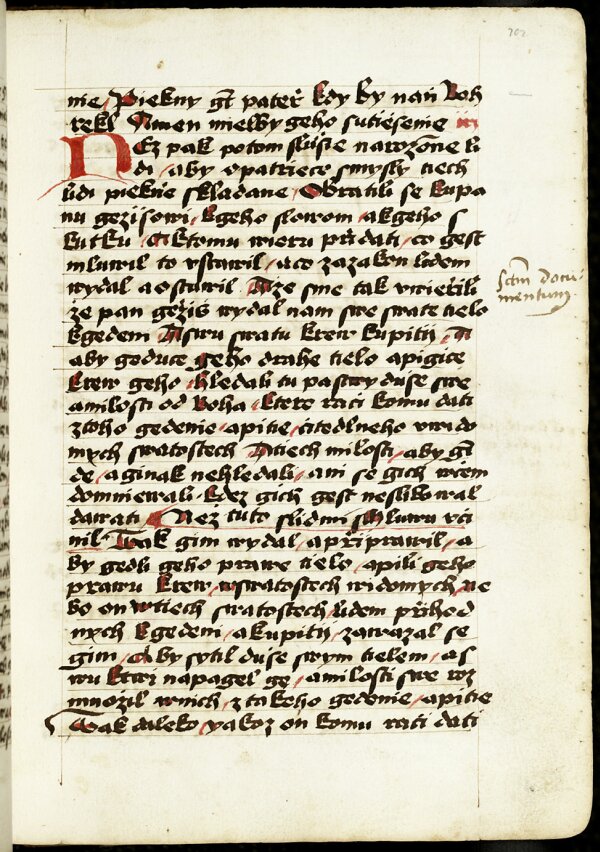 202
nie Piekny gt pateř kdy by nań Boh
rekl Amen mielby geho sutieśenie
NEz pak potom slussie narozone li
di aby opatriece smysly tiech
lidi piekne skladane Obratili se kupa
nu gezisowi kgeho slowom akgeho s
kutku A ktomu wieru přidati co gest
mluwil to vstawil aco zazakon lidem
wydal aostawil Aze sme tak vwieřili
že pan gežiś wydal nam swe swate tielo
kgedem Aswu swatu krew kupitij A
aby geduce geho drahe tielo apigice
krew geho hledali tu pastwy duśe swe
amilosti od Boha ktere rači komu dati
ztoho gedenie apitie čitedlneho wido
mych swatostech Atiech milosti aby gt
de aginak nehledali ani se gich wśem
domniewali kdez gich gest neslibowal
dawati Než tuto slidmi smluwu vči
nil Wak gim wydal apřiprawil a
by gedli geho prawe tielo apili geho
prawu krew wswatostech widomych ne
bo on wtiech swatostech lidem přihod
nych kgedeni akupitij zawazal se
gim Aby sytil duśe swym tielem a s
wu krwi napagel ge amilosti swe roz
množil wnich ztakeho gedenie apitie
Wak daleko yakoz on komu rači dati
sctm docu
mentum